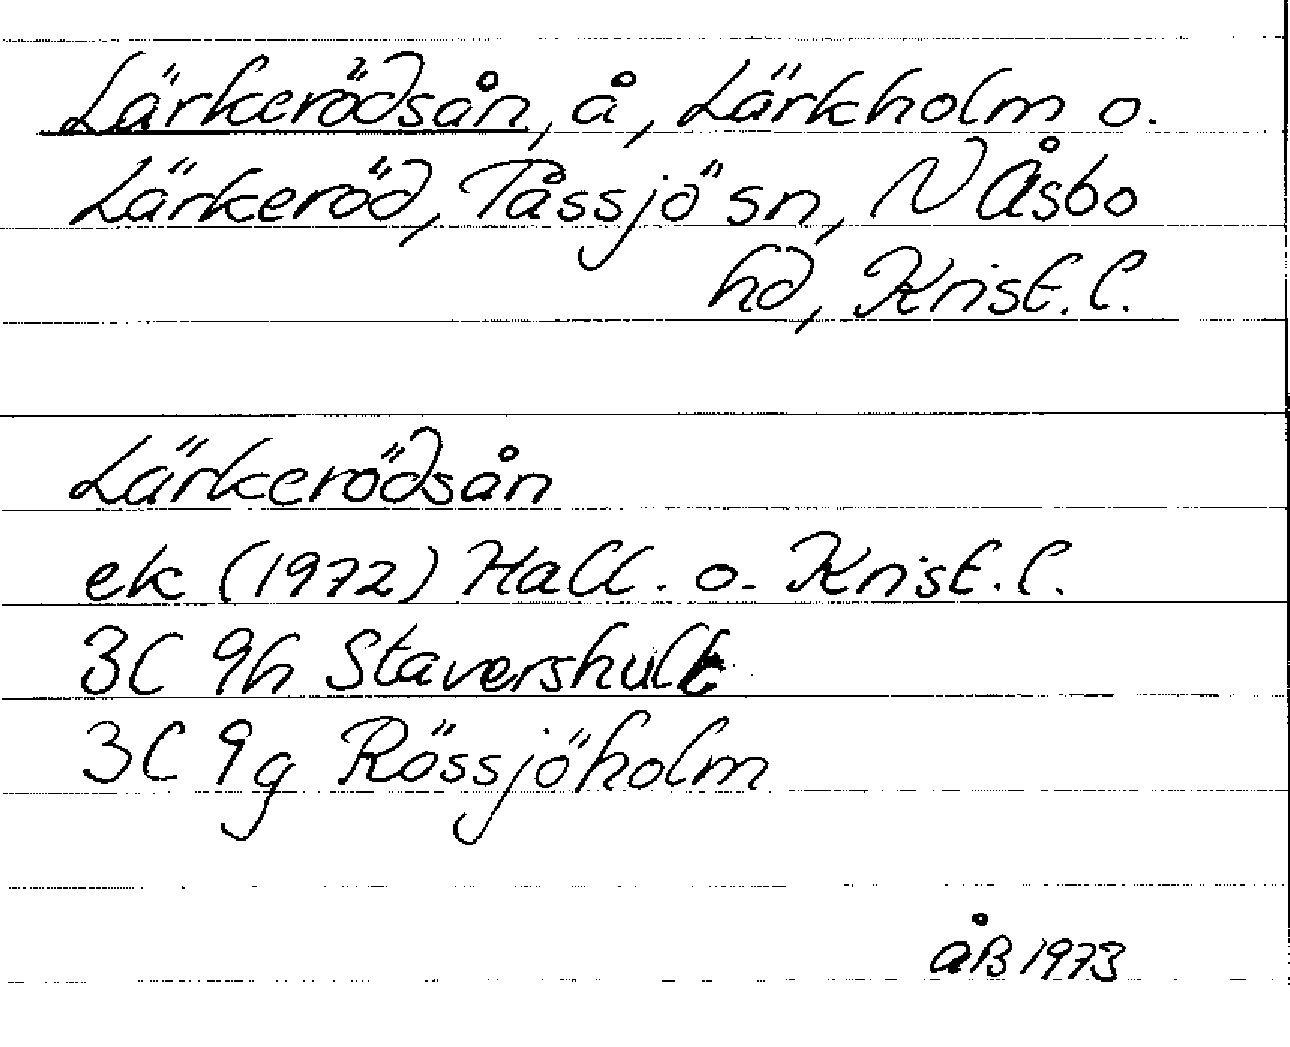 Lärkerödsån, å, Lärkholm o.
Lärkeröd, Tåssjö sn, N Åsbo
hd, Krist. l.
Lärkerödsån
ek (1972) Hall. o. Krist. l.
3C 9h Stavershult
3C 9g Rössjöholm
ÅB 1973